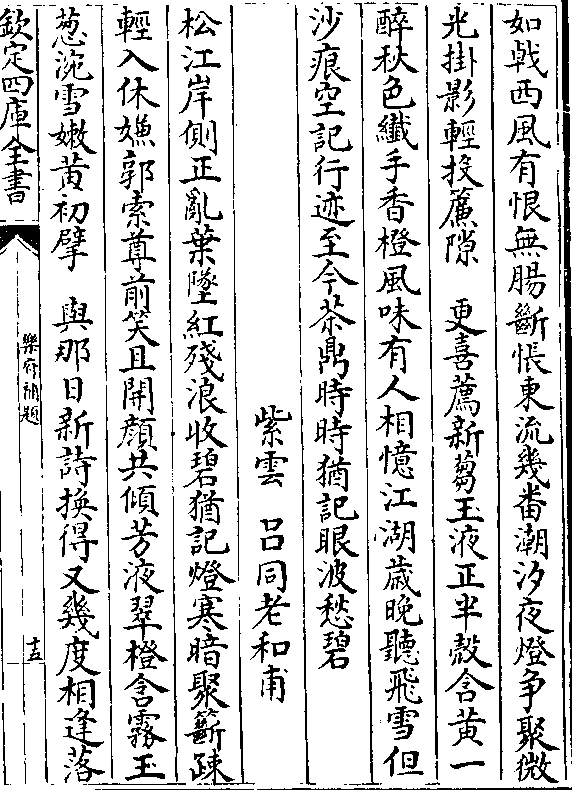 如㦸西風有恨無腸斷悵東流幾畨潮汐夜燈争聚微
光掛影輕投簾隙　更喜薦新蒭玉液正半殻含黄一
醉秋色纖手香橙風味有人相憶江湖歳晚聽飛雪但
沙痕空記行迹至今茶鼎時時猶記眼波愁碧
紫雲　吕同老和甫
松江岸側正亂葉墜紅殘浪收碧猶記燈寒暗聚籪疎
輕入休嫌郭索尊前笑且開顔共傾芳液翠橙含霧玉
葱浣雪嫩黄初擘　與那日新詩換得又幾度相逢落
欽定四庫全書
樂府補題
十五